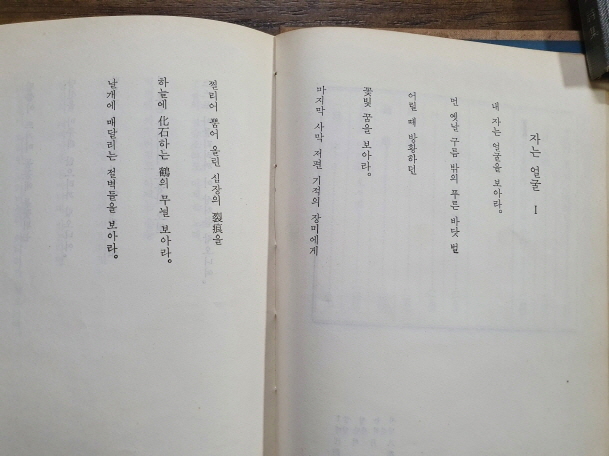 자는 얼굴 I
내 자는 얼굴을 보아라.
먼 옛날 구름 밖의 푸른 바닷 벌
어릴 때 방황하던
꽃빛 꿈을 보아라.
마지막 사막 저편 기적의 장미에게
찔리어 뿜어 올린 심장의 裂痕을
하늘에 化石하는 鶴의 무늬 보아라.
날개에 매달리는 절벽들을 보아라.